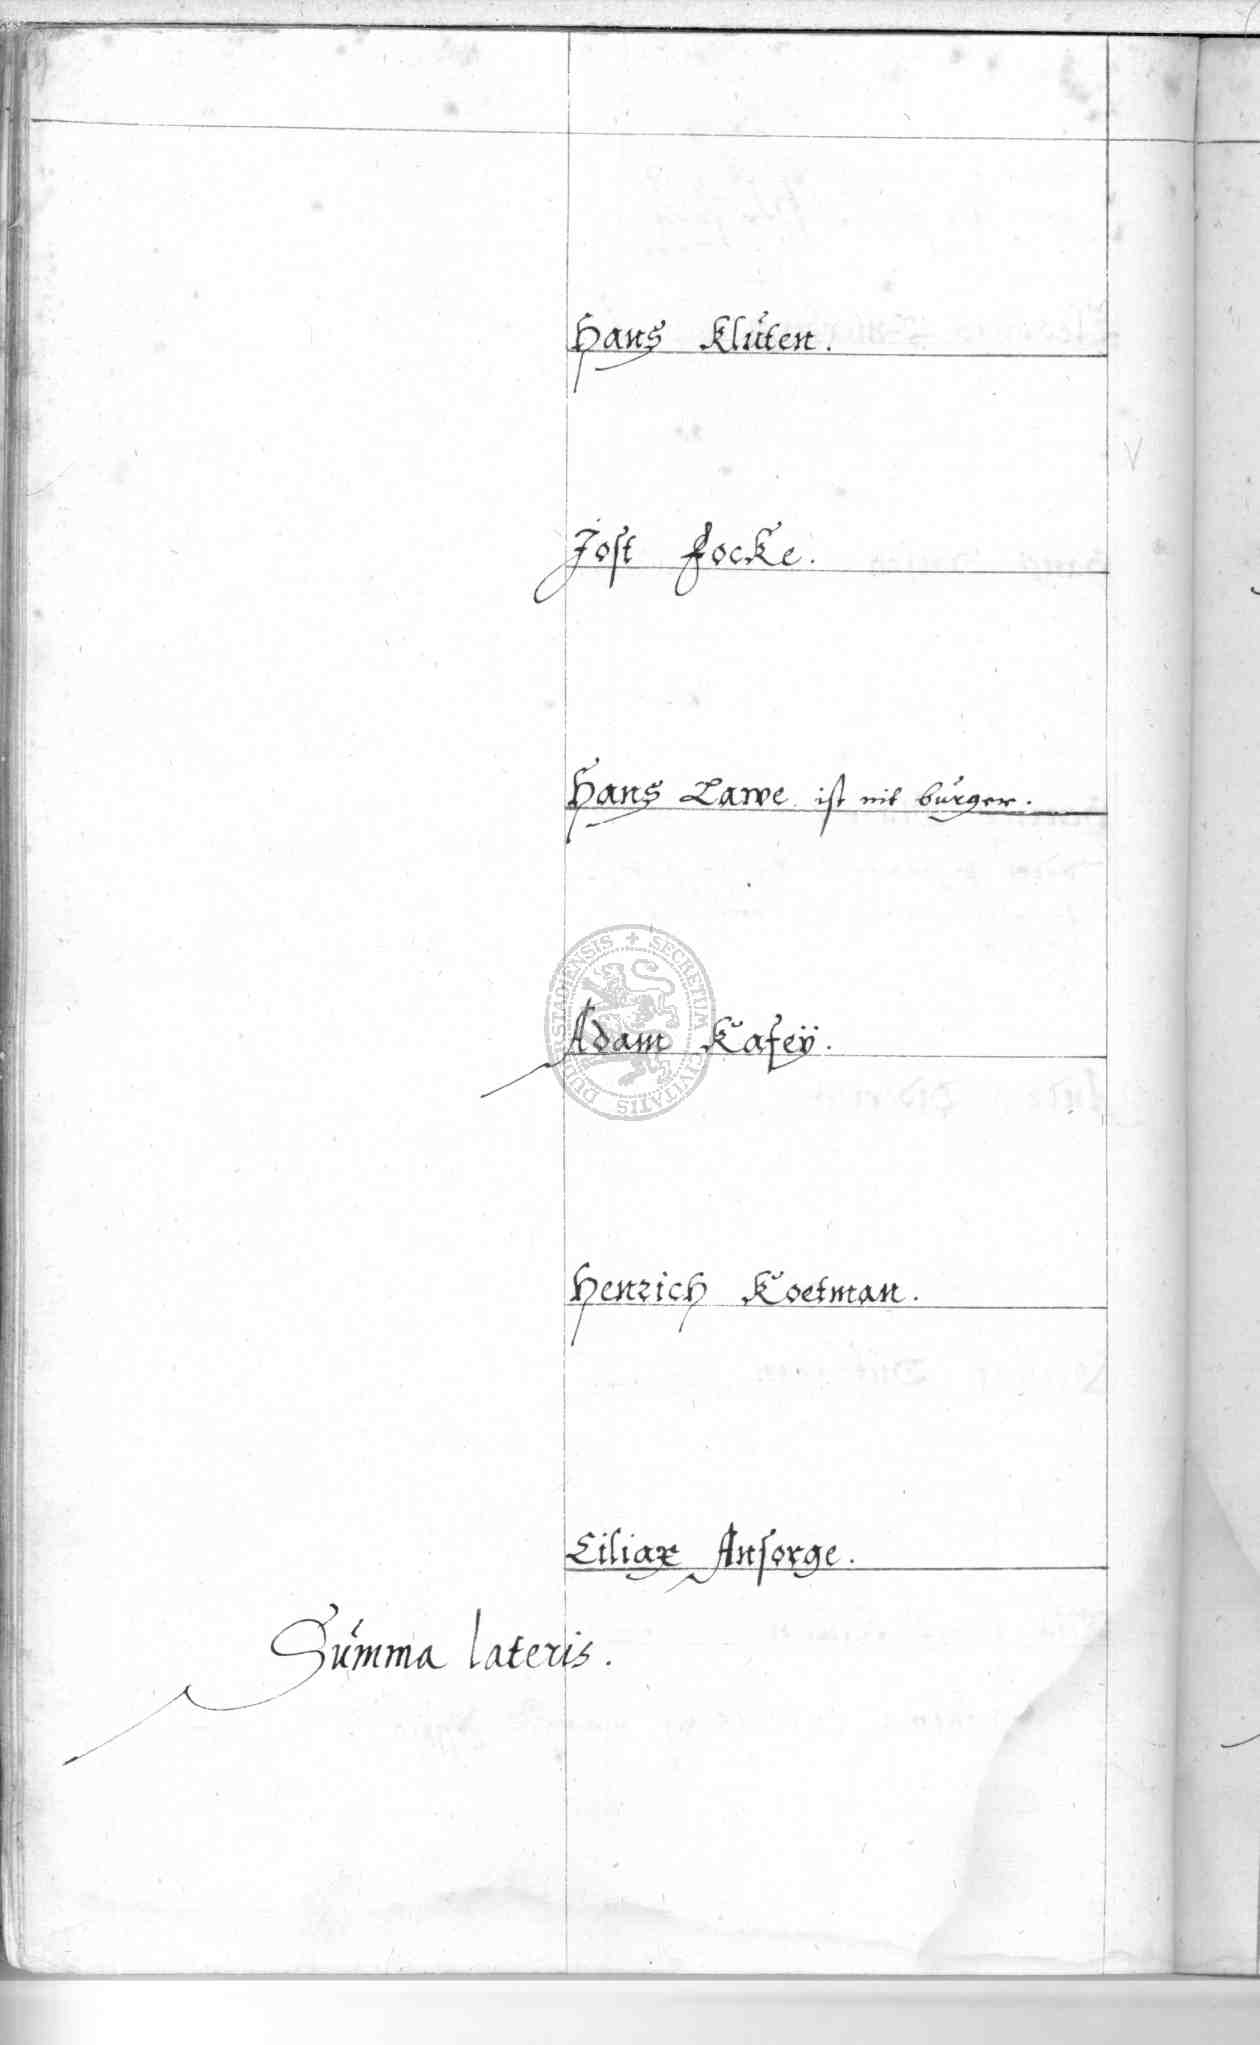 Hans Kluten.
Jost Focke.
Hans Lawe ist nit burger.
Adam Kafeÿ.
Henrich Koetman.
Ciliax Ansorge.
Summa lateris.
SECRETUM CIVITATIS DUDERSTADIENSIS